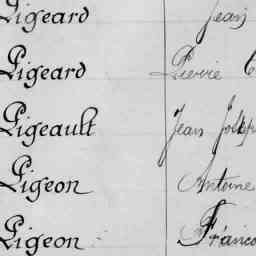 Pigeard Jean
Pigeard Pierre
Pigeault Jean Joseph
Pigeon Antoine
Pigeon Franco